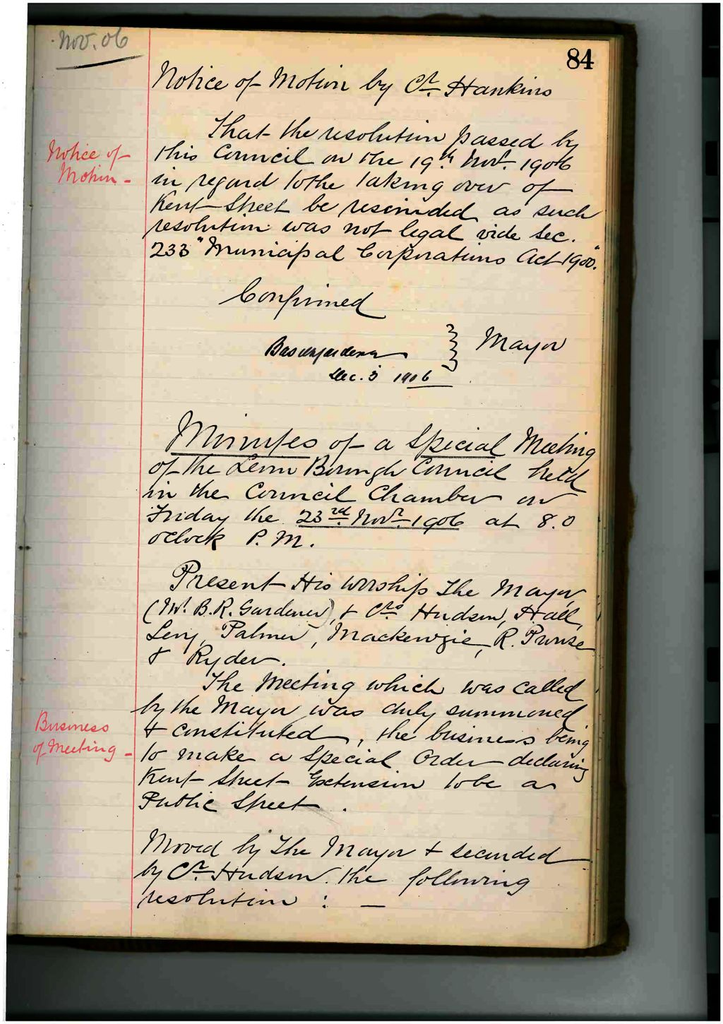 Nov. 06
84
Notice of Motion by Cr. Hankins
Notice of
Motion -
That the resolution passed by
this Council on the 19th Novr. 1906
in regard to the taking over of
Kent Street be rescinded as such
resolution was not legal vide Sec.
233 "Municipal Corporations Act 1900."
Confirmed
Mayor
Dec. 3 1906
Minutes of a Special Meeting
of the Levin Borough Council held
in the Council Chamber on
Friday the 23rd Novr. 1906 at 8.0
oClock P.M.
Present His Worship The Mayor
(Mr. B.R. Gardener) & Crs Hudson, Hall,
Levy, Palmer, Mackenzie, R. Prouse
& Ryder.
Business
of Meeting -
The Meeting which was called
by the Mayor was duly summoned
& constituted, the business being
to make a Special Order declaring
Kent Street Extension to be a
Public Street.
Moved by The Mayor & seconded
by Cr. Hudson the following
resolution : —